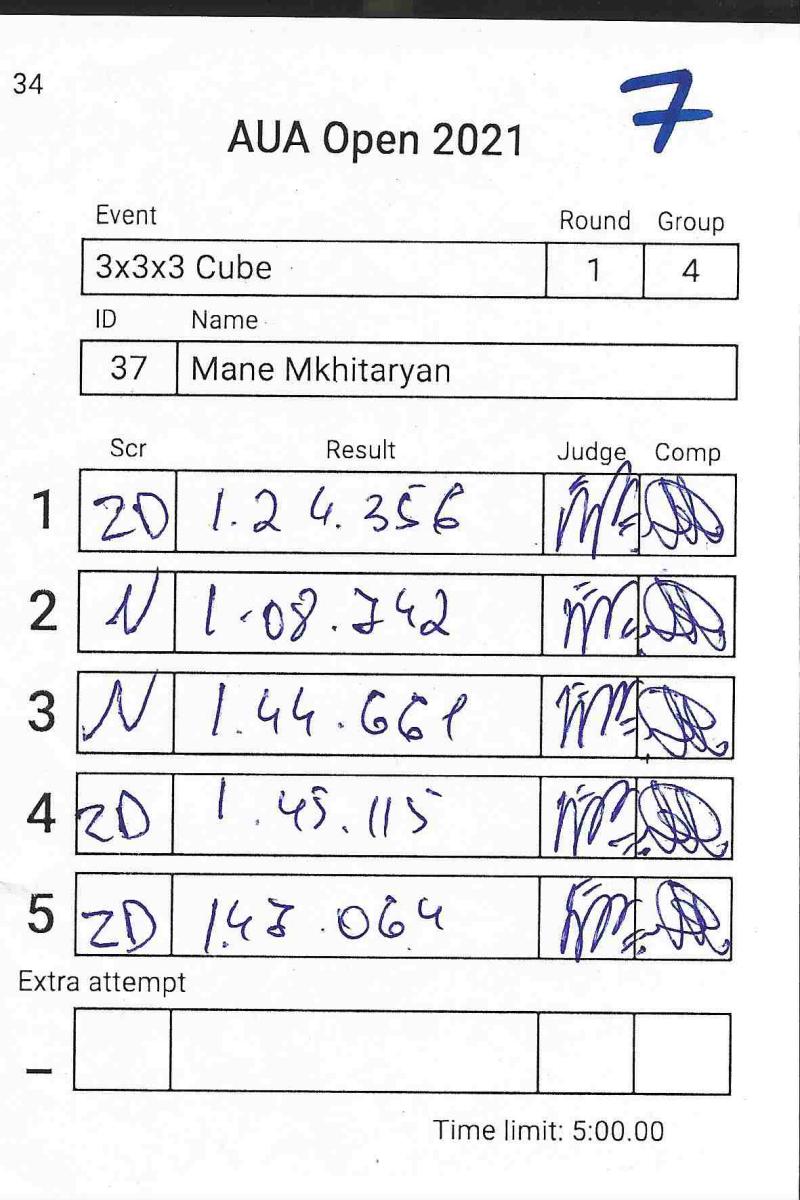 34
7
AUA Open 2021
Event Round Group
3x3x3 Cube 1 4
ID Name
37 Mane Mkhitaryan
Scr Result Judge Comp
1 ZD 1.24.356
2 N 1.08.742
3 N 1.44.661
4 ZD 1.45.115
5 ZD
Extra attempt
–
Time limit: 5:00.00